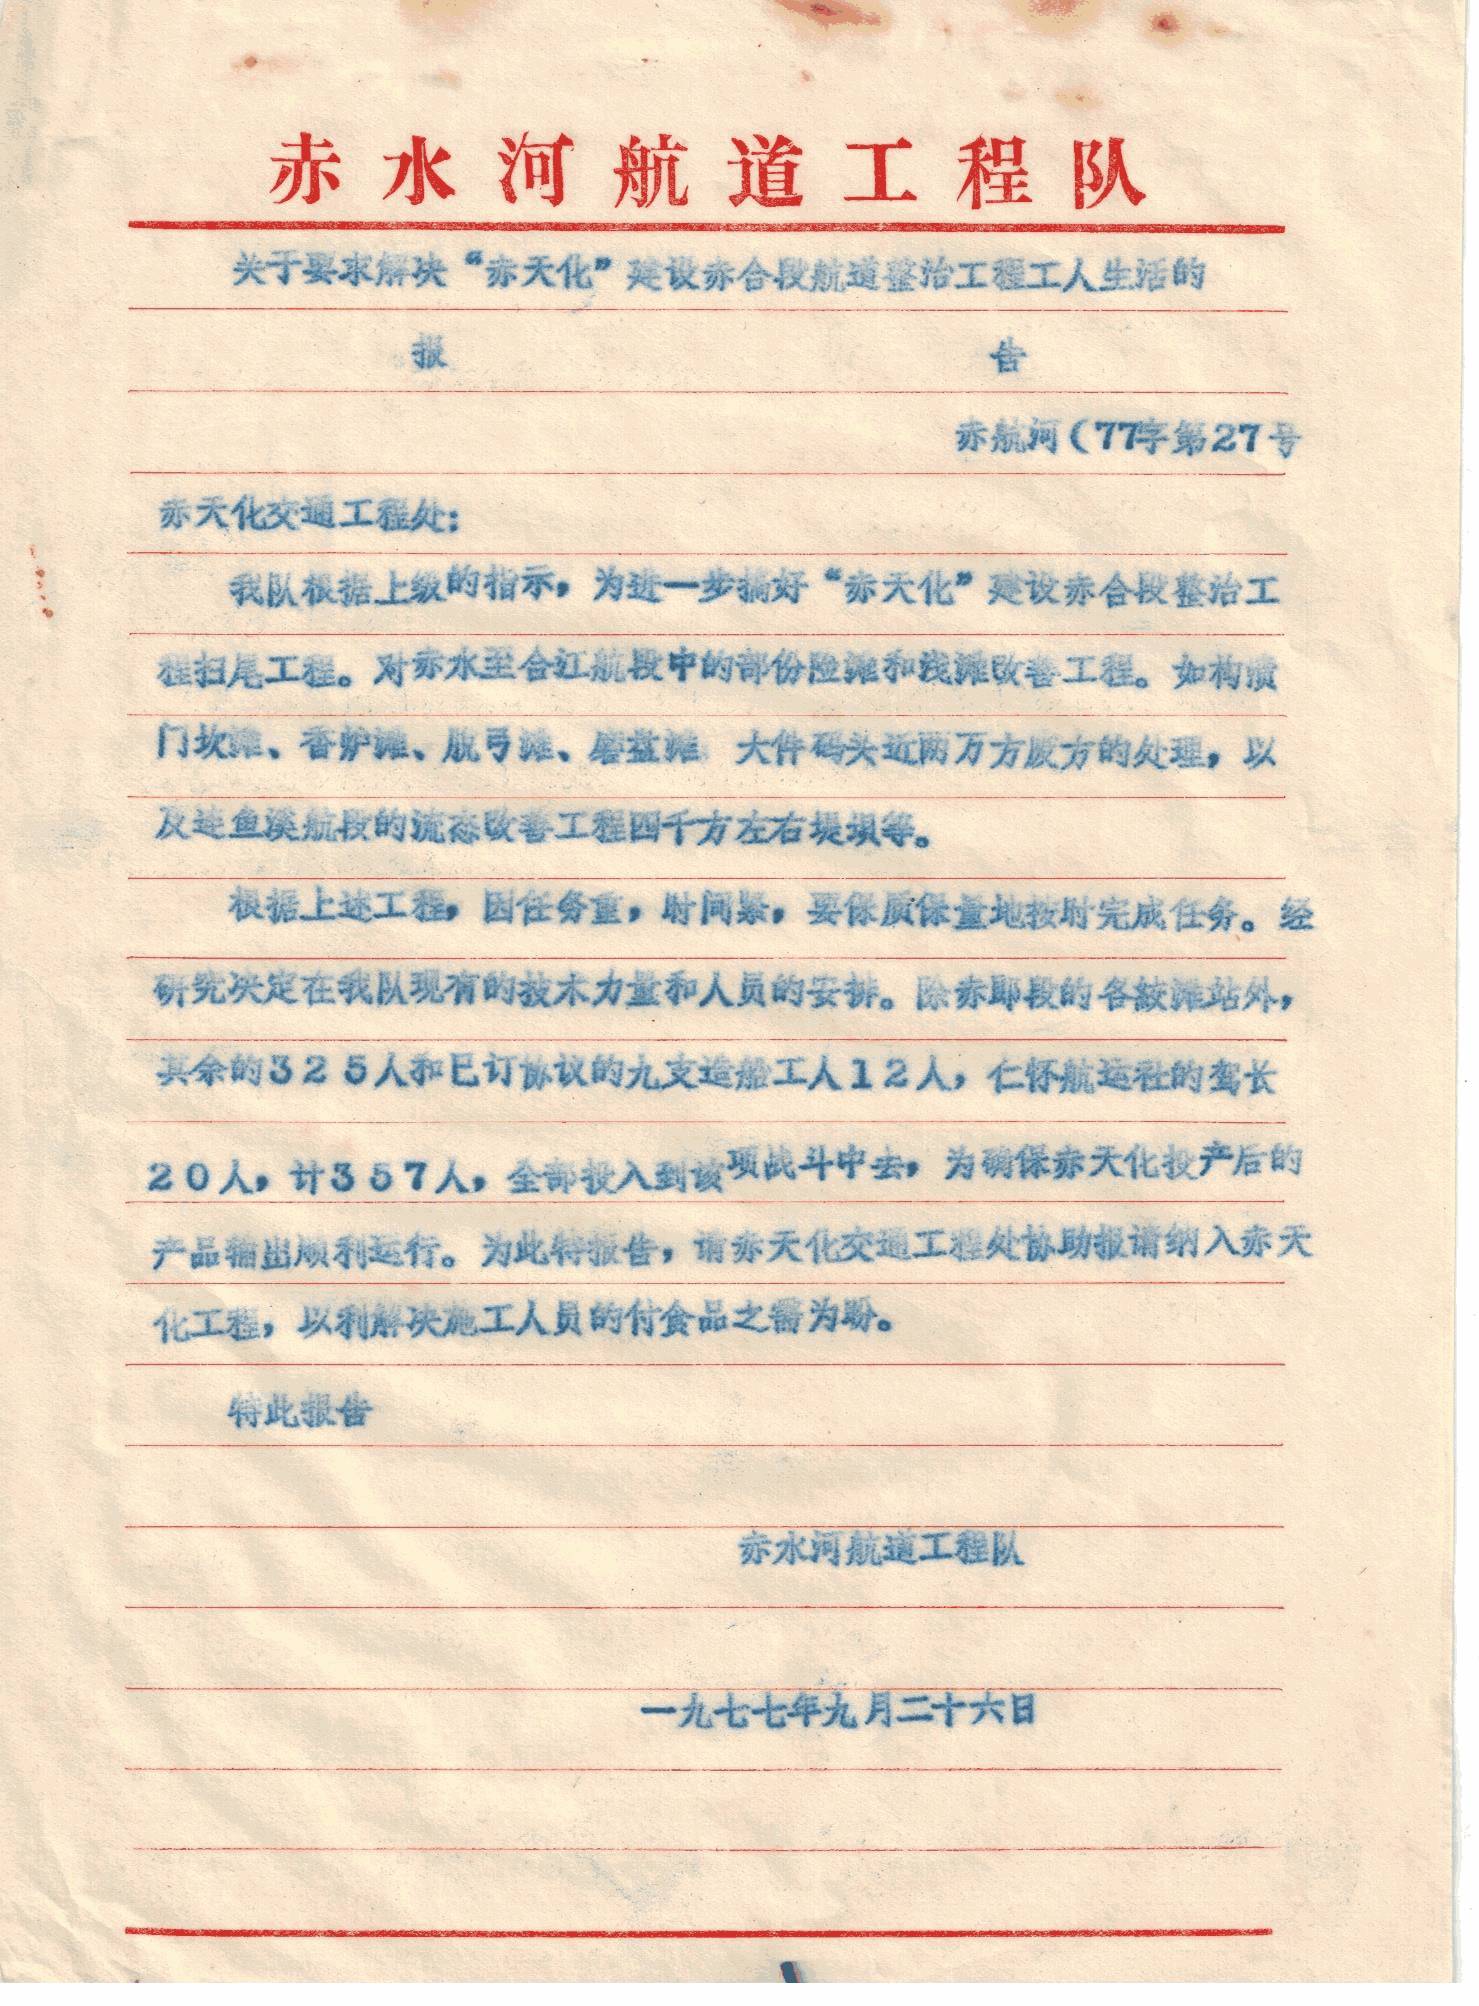 赤水河航道工程队
关于要求解决“赤天化”建设赤合段航道整治工程工人生活的
报告
赤航河(77字第27号
赤天化交通工程处:
我队根据上级的指示,为进一步搞好“赤天化”建设赤合段整治工
程扫尾工程。对赤水至合江航段中的部份险滩和浅滩改善工程。如构
门坎滩、香炉滩、脱弓滩、磨盘滩 大件码头近两万方废方的处理,以
及连鱼溪航段的流态改善工程四千方左右堤坝等。
根据上述工程,因任务重,时间紧,要保质保量地按时完成任务。经
研究决定在我队现有的技术力量和人员的安排。除赤段的各绞滩站外,
其余的325人和已订协议的九支造船工人12人,仁怀航运社的驾长
20人,计357人,全部投入到该项战斗中去,为确保赤天化投产后的
产品输出顺利运行。为此特报告,请赤天化交通工程处协助报请纳入赤天
化工程,以利解决施工人员的付食品之需为盼。
特此报告
赤水河航道工程队
一九七七年九月二十六日